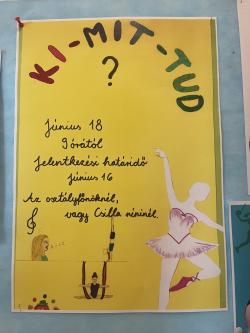 KI-MIT-TUD
?
Június 18
9 órától
Jelentkezési határidő
június 16
Az osztályfőnöknél,
vagy Csilla néninél.